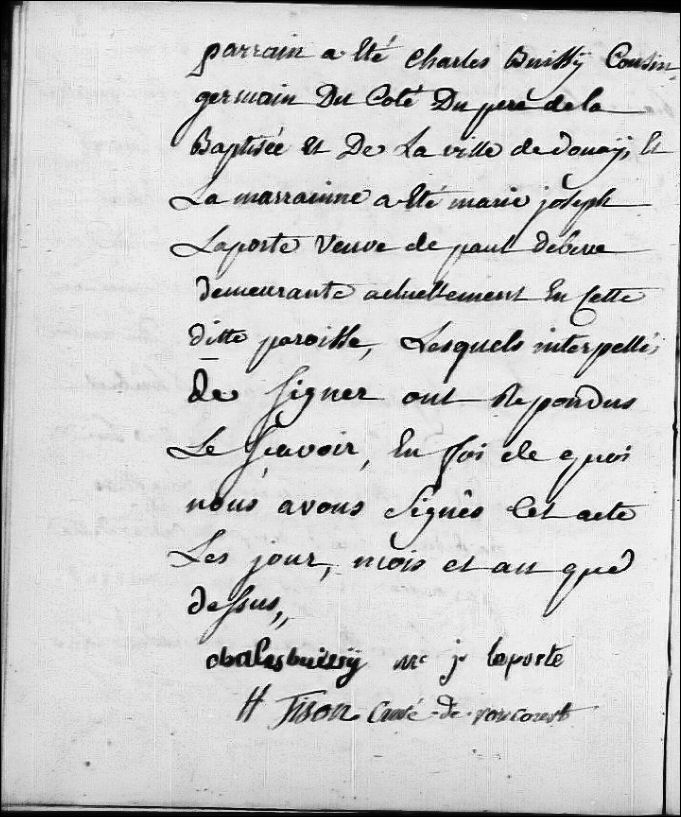 parrain a Eté Charles Buissÿ Cousin
germain Du Coté Du pere de la
Baptisée Et De La ville de douaÿ, Et
La marrainne a Eté marie joseph
Laporte Veuve de paul
demeurante actuellement En Cette
ditte paroisse, Lesquels interpellés
de signer ont Repondus
Le sçavoir, En foi de quoi
nous avons signés Cet acte
Les jour, mois et an que
dessus,,
charles buissÿ m j laporte
H Tison Curé de